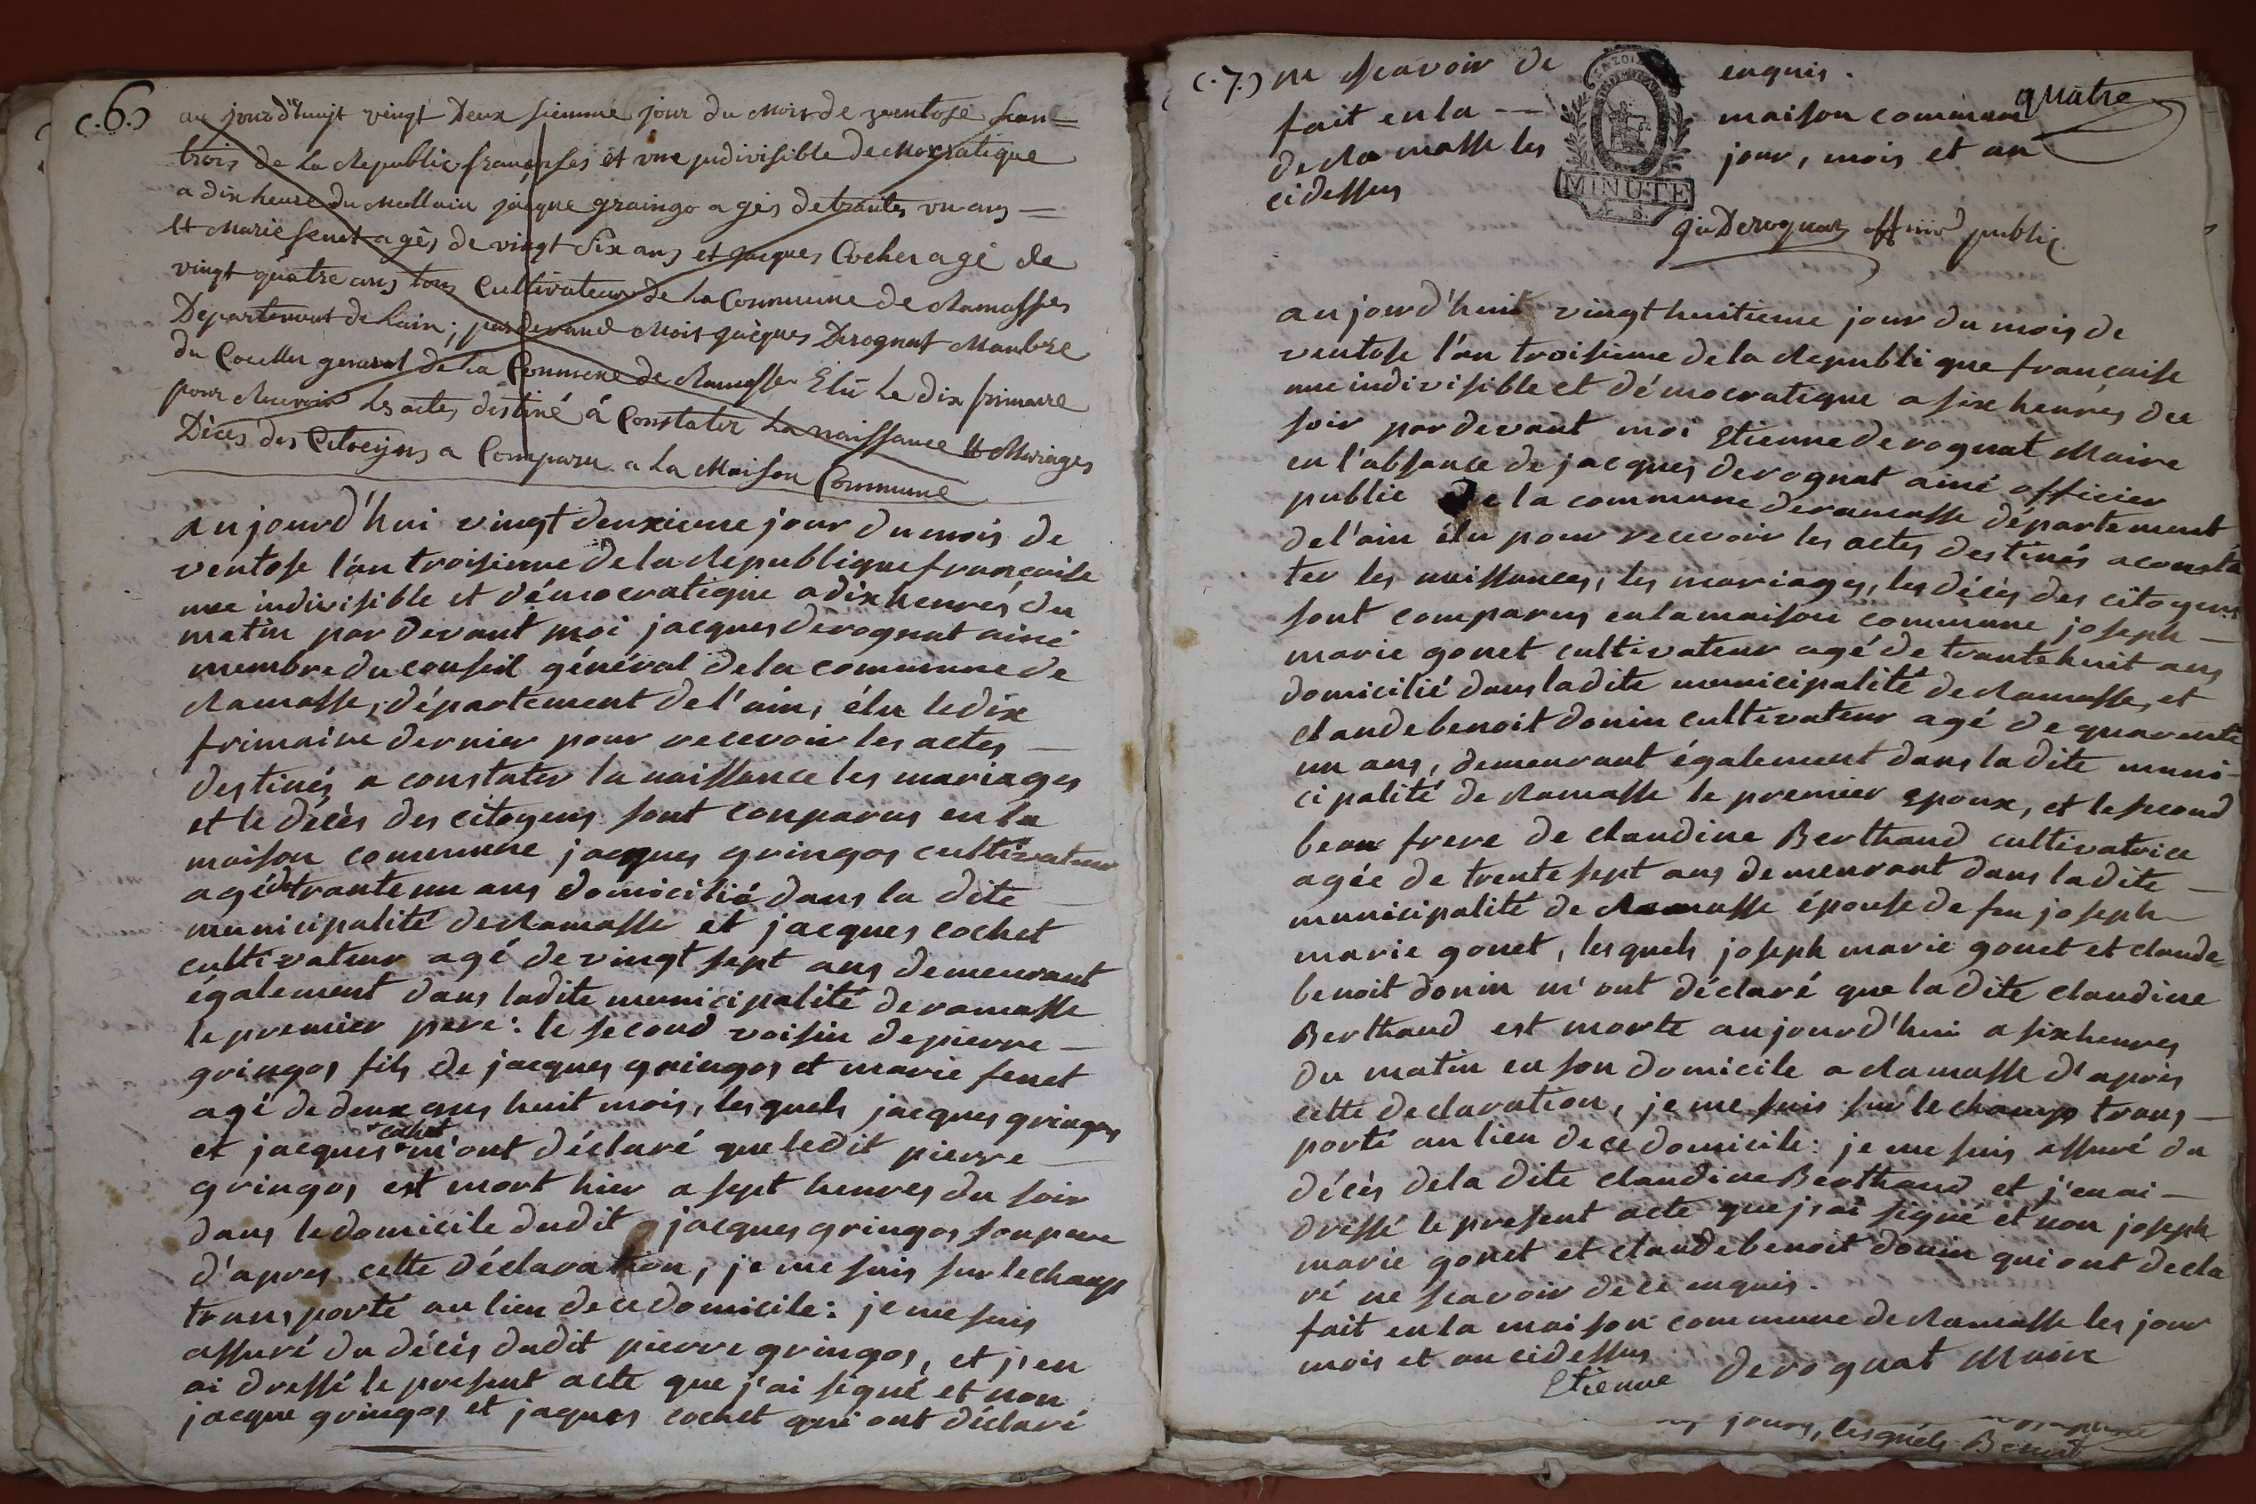 (.6.)
au jourd'huyt vingt Deux sieumé jour du Mois de ventose lean =
trois de La Republic françoises et une jndivisible deMocratique
a dix heure du Mattain jacque graingo agés de trantes un ans =
Et Marie fenet agés de vingt Six ans et Jacques Cochet agé de
vingt quatre ans tous Cultivateur de La Commune de Ramasses
Departemant de Lain ; par devand Mois Jacques Derognat Manbre
du Counller general de La Commune de Ramasse Elü Le dix frimaire
pour Recevoir Les actes destiné á Constater La naissance Et Mariages
Déces des Citoeyns a Comparu a La Maison Commune
aujourd'hui vingt deuxieme jour du mois de
ventose l'an troisieme de la Republique française
une indivisible et démocratique a dix heures du
matin par devant moi jacques derognat ainé
membre du conseil général de la commune de
Ramasse, département de l'ain, élu le dix
frimaire dernier pour recevoir les actes —
destinés a constater la naissance les mariages
et le décès des citoyens sont conparus en la
maison commune jacques gringos cultivateur
agé de trante un ans domicilié dans la dite
municipalité de Ramasse et jacques cochet
cultivateur agé de vingt sept ans demeurant
également dans ladite municipalité de ramasse
le premier pere : le second voisin de pierre —
gringos fils de jacques gringos et marie fenet
agé de deux ans huit mois, lesquels jacques gringos
et jacques cochet m'ont déclaré que ledit pierre —
gringos est mort hier a sept heures du soir
dans le domicile dudit jacques gringos son pere
d'apres cette déclaration, je me suis sur le champ
transporté au lieu de ce domicile : je me suis
assuré du décés dudit pierre gringos, et j'en
ai dressé le present acte que j'ai signé et non
jacque gringos et jaques cochet qui ont déclaré
(.7.) ne scavoir de enquis .
quatre
fait en la — maison commune
de Ramasse les jour, mois et an
cidessus
MINUTE
Derognat officier public
aujourd'huit vingt huitieme jour du mois de
ventose l'an troisieme de la Republique française
une indivisible et démocratique a six heures du
soir par devant moi Etienne derognat Maire
en l'absance de jacques derognat ainé officier
public de la commune deramasse département
de l'ain élu pour recevoir les actes destinés a consta
ter les naissances, les mariages, les décès des citoyens
sont comparus en la maison commune joseph —
marie gonet cultivateur agé de trante huit ans
domicilié dans ladite municipalité de Ramasse, et
claude benoit donin cultivateur agé de quarente
un ans, demeurant également dans ladite muni-
cipalité de Ramasse le premier epoux, et le second
beau frere de claudine Berthaud cultivatrice
agée de trente sept ans demeurant dans ladite —
municipalité de Ramasse épouse de feu joseph —
marie gonet, lesquels joseph marie gonet et claude
benoit donin m'ont déclaré que la dite claudine
Berthaud est morte aujourd'hui a six heures
du matin en son domicile a Ramasse d'après
cette declaration, je me suis sur le champ trans —
porté au lieu de ce domicile : je me suis assuré du
décès de la dite claudine Berthaud et j'en ai —
dressé le present acte que j'ai signé et non joseph
marie gonet et claude benoit donin qui ont decla
ré ne scavoir de ce enquis .
fait en la maison commune de Ramasse les jour
mois et an cidessus
Etienne derognat Maire
jours, lesquels Benoit